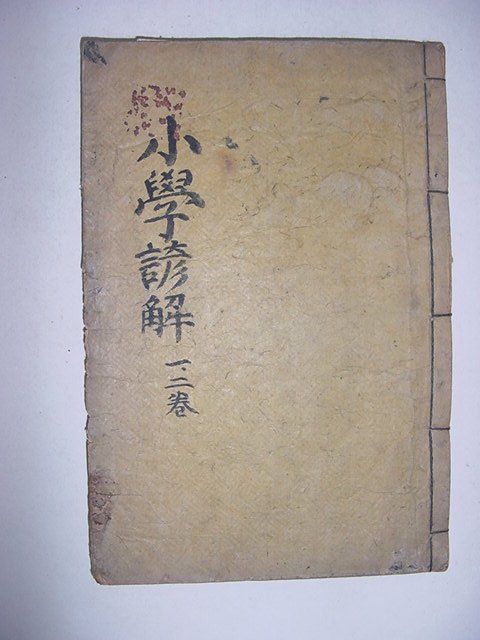 小學諺解
一.二卷